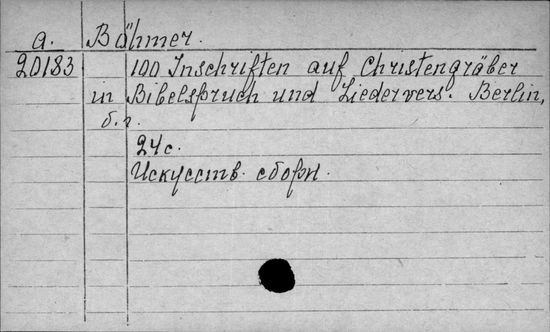 a. Böhmer.
20183 100 Inschriften auf Christengräber
in Bibelspruch und Liedervers. Berlin,
б.г.
24с.
Искусств. сборн.